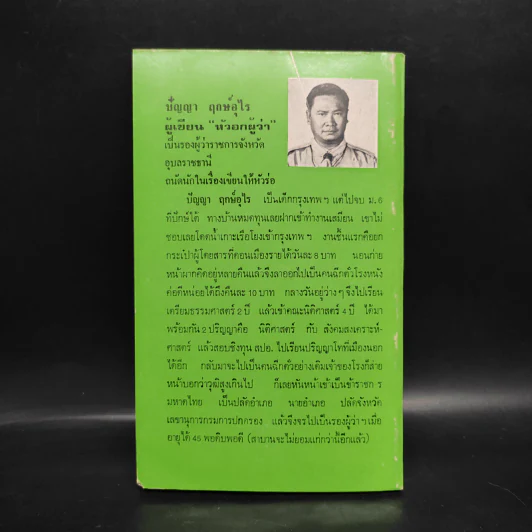 ปัญญา ฤกษ์อุไร
ผู้เขียน "หัวอกผู้ว่า"
เป็นรองผู้ว่าราชการจังหวัด
อุบลราชธานี
ถนัดนักในเรื่องเขียนให้หัวร่อ
ปัญญา ฤกษ์อุไร เป็นเด็กกรุงเทพ ฯ แต่ไปจบ ม. ๖
ที่ปักษ์ใต้ ทางบ้านหมดทุนเลยฝากเข้าทำงานเสมียน เขาไม่
ชอบเลยโดดน้ำเกาะเรือโยงเข้ากรุงเทพ ฯ งานชิ้นแรกคือยก
กระเป๋าผู้โดยสารที่ดอนเมืองรายได้วันละ ๘ บาท นอนก่าย
หน้าผากคิดอยู่หลายคืนแล้วจึงลาออกไปเป็นคนฉีกตั๋วโรงหนัง
ค่อยดีหน่อยได้ถึงคืนละ ๑๐ บาท กลางวันอยู่ว่าง ๆ จึงไปเรียน
เตรียมธรรมศาสตร์ ๒ ปี แล้วเข้าคณะนิติศาสตร์ ๔ ปี ได้มา
พร้อมกัน ๒ ปริญญาคือ นิติศาสตร์ กับ สังคมสงเคราะห์-
ศาสตร์ แล้วสอบชิงทุน สปอ. ไปเรียนปริญญาโทที่เมืองนอก
ได้อีก กลับมาจะไปเป็นคนฉีกตั๋วอย่างเดิมเจ้าของโรงก็ส่าย
หน้าบอกว่าวุฒิสูงเกินไป ก็เลยหันหน้าเข้าเป็นข้าราชการ
มหาดไทย เป็นปลัดอำเภอ นายอำเภอ ปลัดจังหวัด
เลขานุการกรมการปกครอง แล้วจึงจรไปเป็นรองผู้ว่า ฯ เมื่อ
อายุได้ ๔๕ พอดิบพอดี (สาบานจะไม่ยอมแก่กว่านี้อีกแล้ว)